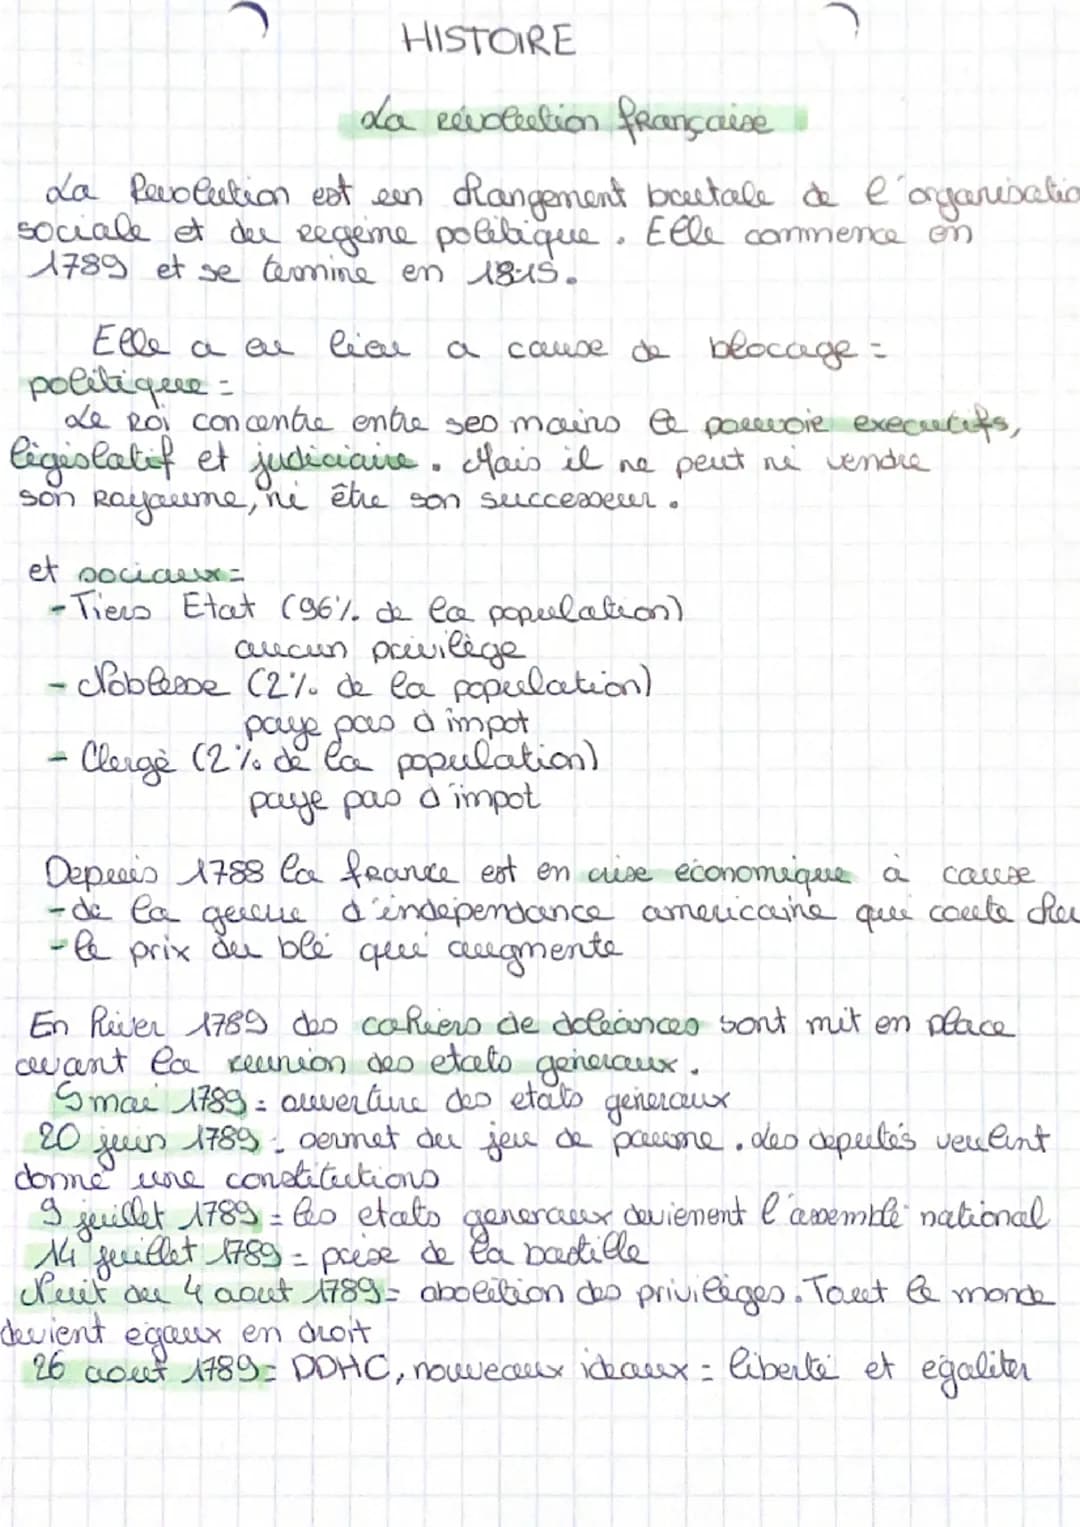 HISTOIRE
La révolution française
La Revolution est un changement brutale de l'organisatio
sociale et du regime politique. Elle commence en
1789 et se termine en 1815.
Elle a eu lieu a cause de blocage =
politique =
Le Roi concentre entre ses mains le pouvoir executifs,
législatif et judiciaire. Mais il ne peut ni vendre
son Royaume, ni être son successeur.
et sociaux=
-Tiers Etat (96% de la population)
aucun privilège
- Noblesse (2% de la population)
paye pas d impot
- Clergè (2% de la population)
paye pas d'impot
Depuis 1788 la france est en crise économique à cause
-de la guerre d'indépendance americaine qui coute cher
-le prix du blé qui augmente
En hiver 1789 des cahiers de doléances sont mit en place
avant la reunion des etats generaux.
5 mai 1789 = ouverture des etats géneraux
20 juin 1789 = serment du jeu de paume. des deputés veulent
donné une constitutions
9 juillet 1789 = les etats generaux devienent l'assemblé national
14 juillet 1789 = prise de la bastille
Nuit du 4 aout 1789= abolition des privilèges. Tout le monde
devient egaux en droit
26 aout 1789= DDHC, nouveaux ideaux = liberté et egaliter